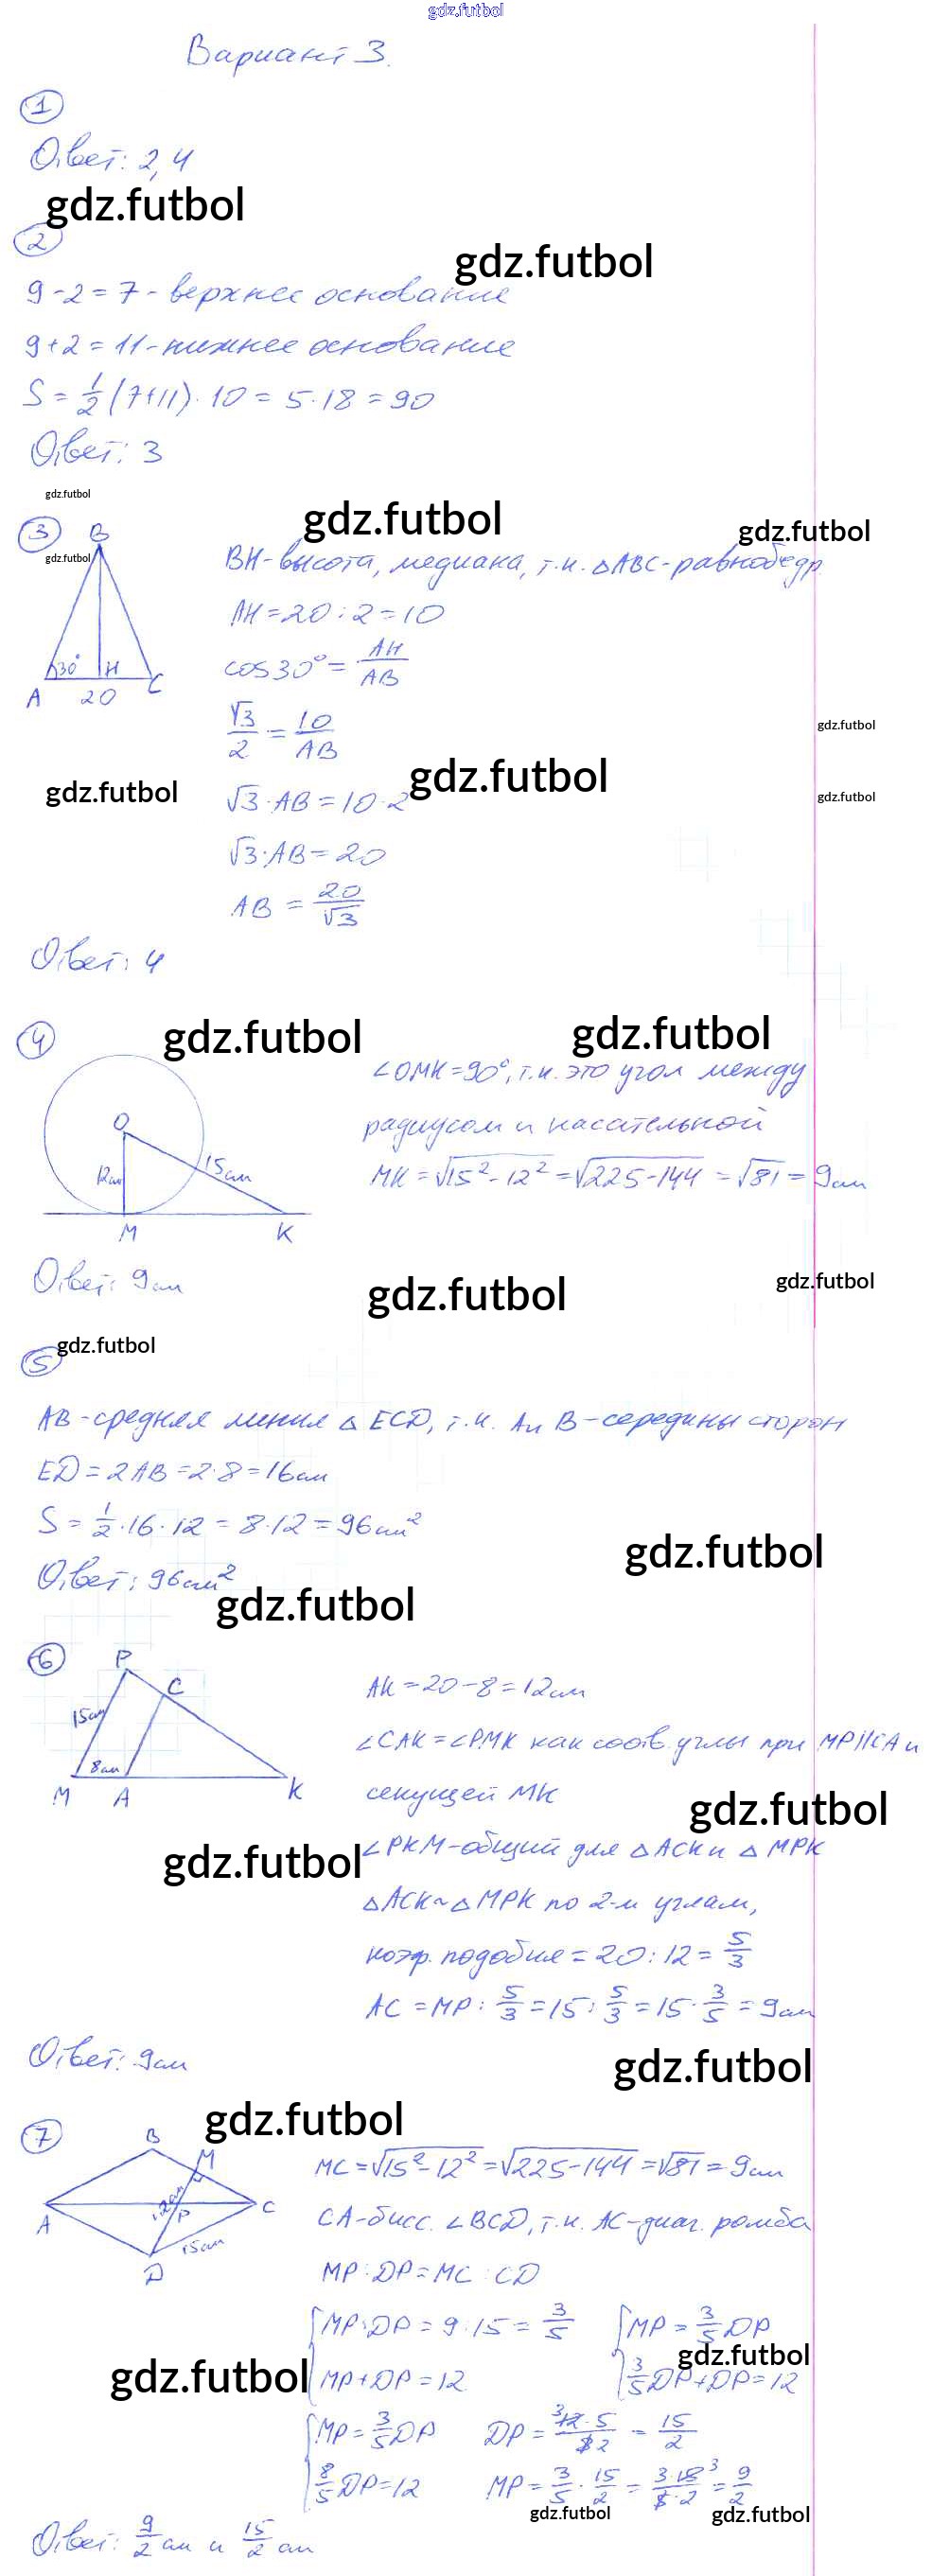 gdz.futbol
Вариант 3.
1
Ответ: 2,4
gdz.futbol
2
gdz.futbol
9-2=7-верхнее основание
9+2=11-нижнее основание
S=1/2(7+11)·10=5·18=90
Ответ: 3
gdz.futbol
gdz.futbol
gdz.futbol
3
gdz.futbol
B
30°
H
A
20
C
BH-высота, медиана, т.к. △ABC-равнобедр.
AH=20:2=10
cos30°=AH/AB
√3/2=10/AB
gdz.futbol
gdz.futbol
gdz.futbol
√3·AB=10·2
gdz.futbol
√3·AB=20
AB=20/√3
Ответ: 4
4
gdz.futbol
gdz.futbol
O
12см
15см
M
K
∠OMK=90°, т.к. это угол между
радиусом и касательной
MK=√15²-12²=√225-144=√81=9см
Ответ: 9см
gdz.futbol
gdz.futbol
gdz.futbol
5
AB-средняя линия △ECD, т.к. A и B-середины сторон
ED=2AB=2·8=16см
S=1/2·16·12=8·12=96см²
gdz.futbol
Ответ: 96см²
gdz.futbol
6
P
C
15см
8см
M
A
K
AK=20-8=12см
∠CAK=∠PMK как соотв. углы при MP||CA и
секущей MK
gdz.futbol
gdz.futbol
∠PKM-общий для △ACK и △MPK
△ACK~△MPK по 2-м углам,
коэф. подобия=20:12=5/3
AC=MP:5/3=15:5/3=15·3/5=9см
Ответ: 9см
gdz.futbol
gdz.futbol
7
B
M
A
12см
P
C
15см
D
MC=√15²-12²=√225-144=√81=9см
CA-бисс. ∠BCD, т.к. AC-диаг. ромба
MP:DP=MC:CD
MP:DP=9:15=3/5
MP=3/5DP
gdz.futbol
gdz.futbol
MP+DP=12
3/5DP+DP=12
MP=3/5DP
DP=3 12·5/8 2=15/2
8/5DP=12
MP=3/5·15/2=3·15 3/5·2=9/2
gdz.futbol
gdz.futbol
Ответ: 9/2см и 15/2см